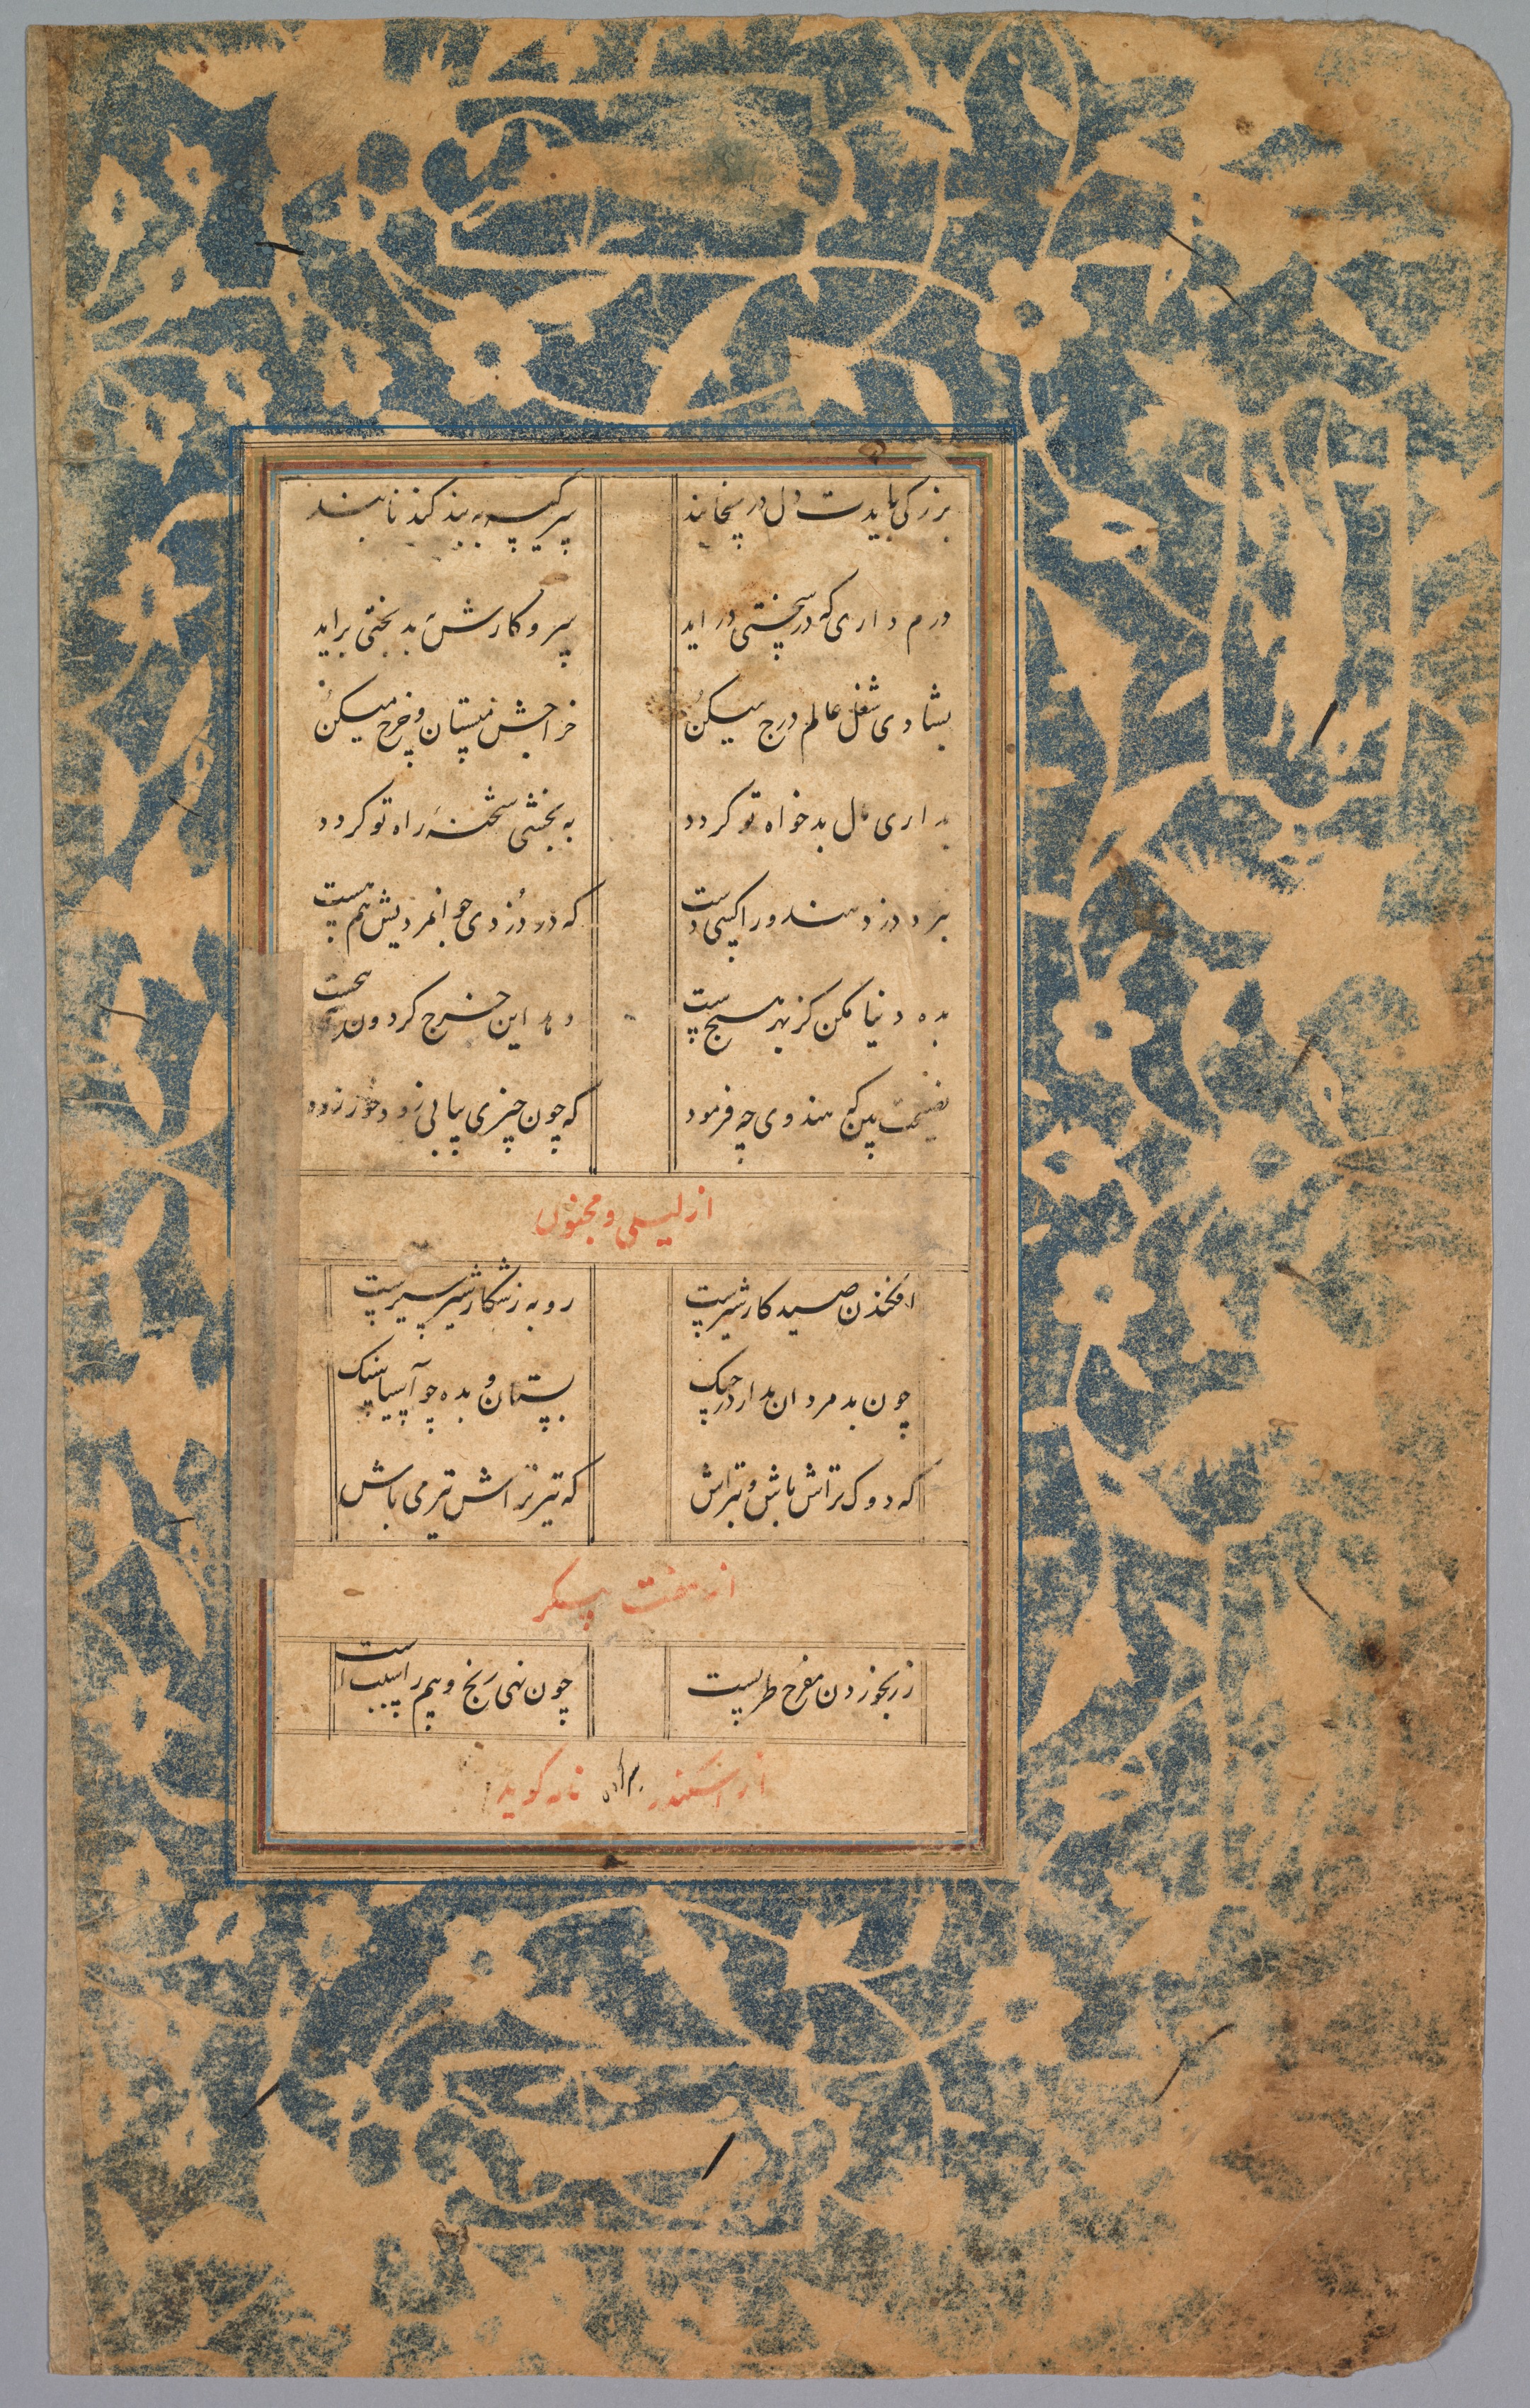 بزرگی بایدت دل در سخا بند سر کیسه به بند گندنا بند
درم داری که در سختی در اید سر و کارش به بدبختی براید
بشادی شغل عالم درج میکن خراجش میستان و خرج میکن
به بخشی شحنه راه تو گردد
نبرد دزد هندو را کسی دست که در دزدی جوانمردیش هم هست
بده دنیا مکن کز بهر هیچست این خرج گردون
نصیحت بین که هندوی چه فرمود که چون چیزی بیابی زود خور زود
از لیلی و مجنون
افکندن صید کار شیرست روبه ز شکار شیر سیرست
چون بد مردان مدار در چنگ بستان و بده چو آسیا سنگ
که دوک تراش باش و تیر تراش که تیر تراش تیر می باش
از هفت پیکر
زر بخوردن مفرح طربست چون نهی رنج و بیم را سببست
از اسکندر نامه گوید